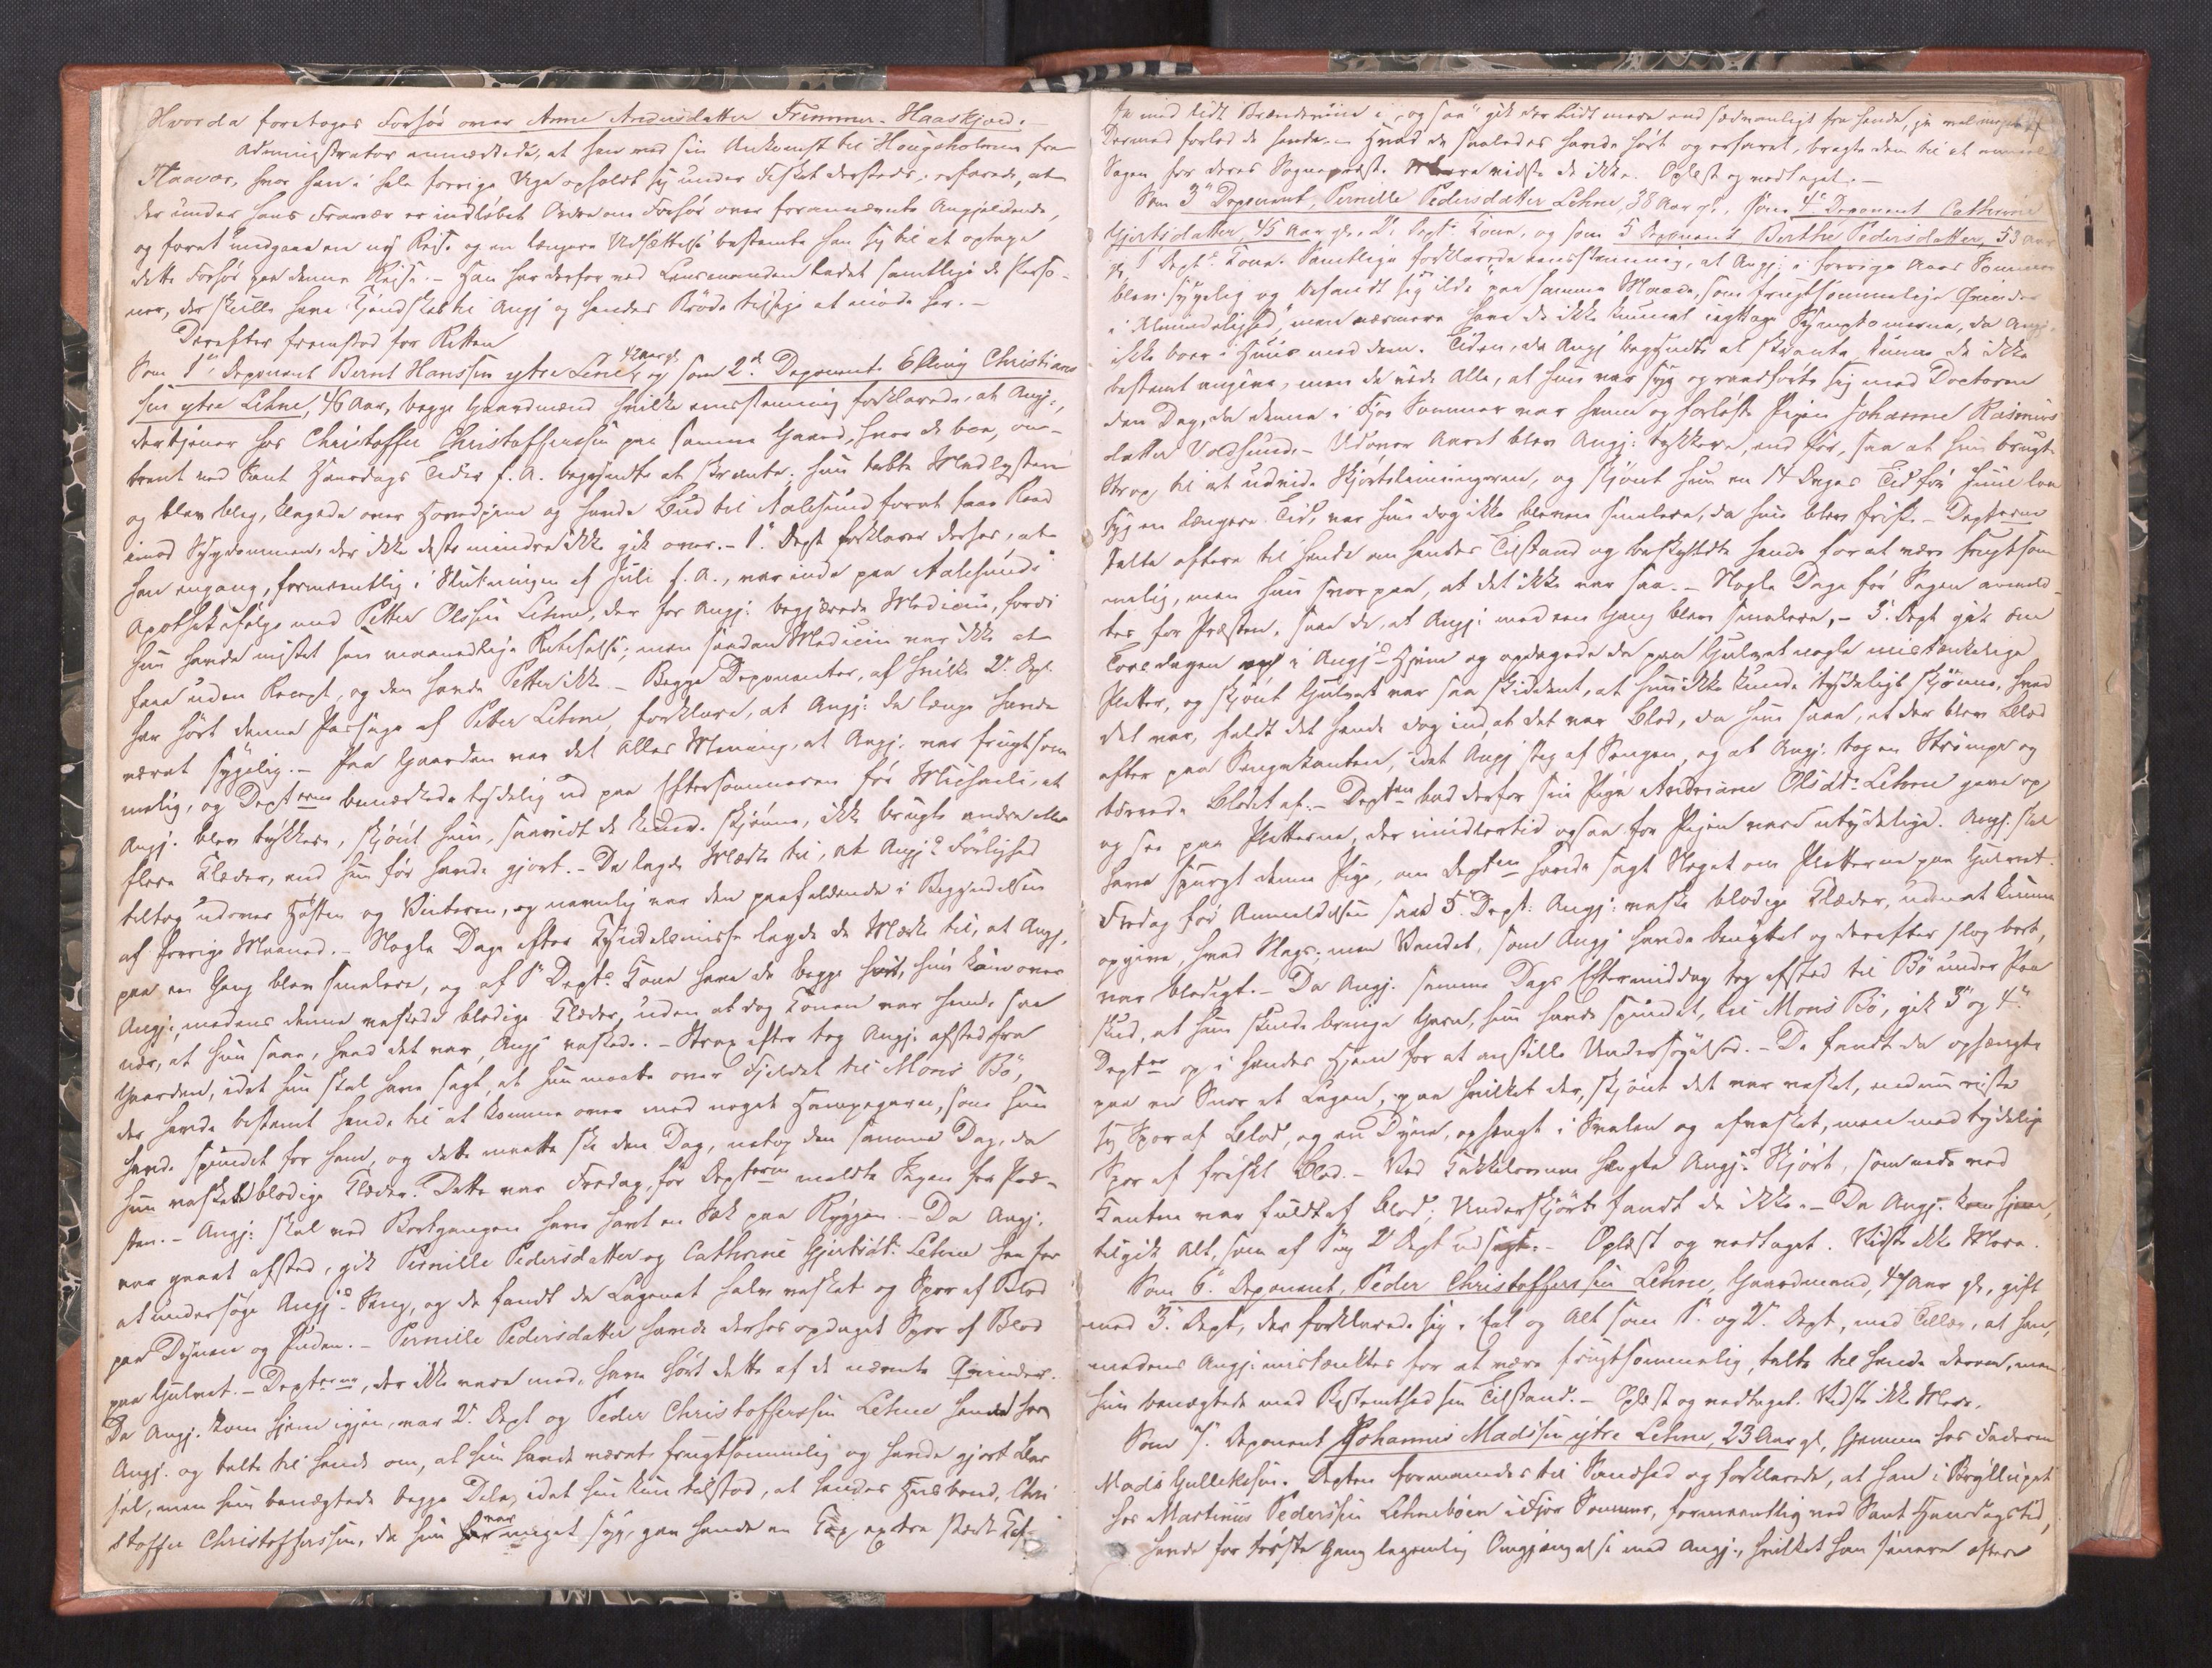 Hvorda foretoges Forhør over Anne Andersdatter Frimmer-Haaskjold.
Administrator anmærkede, at han ved sin Ankomst til Hougsholmen fra
Haavær, hvor han i hele forrige Uge opholdt sig under Fisket dersteds, erfarede, at
der under hans Fravær er indløbet Ordre om Forhør over forannævnte Angjældende,
og forat undgaae en ny Reise og en længere Udsættelse bestemte han sig til at optage
dette Forhør paa denne Reise. – Han har derfor ved Lensmanden ladet samtlige de Perso-
ner, der skulle have Kjendskab til Angj og hendes Brøde tilsige at møde her. –
Derefter fremstod for Retten
Som 1ste Deponent Bernt Hanssen ytre Lehne, 42 Aar gl. og som 2d. Deponent Elling Christians
sen ytre Lehne, 46 Aar, begge Gaardmænd hvilke eensstemmig forklarede, at Angj:,
der tjener hos Christoffer Christofferssen paa samme Gaard, hvor de boe, om-
trent ved Sant Hansdags Tider f. A. begyndte at skrante; hun tabte Madlysten
og blev bleg, klagede over Hovedpine og sendte Bud til Aalesund forat faae Raad
imod Sygdommen, der ikke desto mindre ikke gik over. – 1. Dept forklarer derhos, at
han engang, formeentlig i Slutningen af Juli f. A., var inde paa Aalesunds
Apothek i følge med Petter Olsen Lehne, der for Angj: begjærede Medicin, fordi
hun havde mistet sin maanedlige Renselse; men saadan Medicin var ikke at
faae uden Recept, og den havde Petter ikke. – Begge Deponenter, af hvilke 2. Dpt.
har hørt denne Passage af Peter Lehne, forklare, at Angj: da længe havde
været sygelig. – Paa Gaarden var det Alles Mening, at Angj. var frugtsom
melig, og Depterne bemærkede tydelig ud paa Eftersommeren før Michaeli, at
Angj. blev tykkere, skjønt hun, saavidt de kunde skjønne, ikke brugte andre eller
flere Klæder, end hun før havde gjort. – De lagde Mærke til, at Angjs Førlighed
tiltog udover Høsten og Vinteren, og navnlig var den paafaldende i Begyndelsen
af forrige Maaned. – Nogle Dage efter Kyndelsmisse lagde de Mærke til, at Angj.
paa een Gang blev smalere, og af 1. Depts Kone have de begge hørt, hun kom over
Angj:, medens denne vaskede blodige Klæder, uden at dog Konen var hende saa
nær, at hun saae, hvad det var, Angj vaskede. – Strax efter tog Angj: afsted fra
Gaarden, idet hun skal have sagt, at hun maatte over Fjeldet til Mons Bø,
der havde bestemt hende til at komme over med noget Hampegarn, som hun
havde spundet for ham, og dette maatte ske den Dag, netop den samme Dag, da
hun vaskede blodige Klæder. Dette var Fredag, før Depterne meldte Sagen for Præ-
sten. – Angj: skal ved Bortgangen have havt en Sæk paa Ryggen. – Da Angj.
var gaaet afsted, gik Pernille Pedersdatter og Cathrine Gjertsdt: Lehne hen for
at undersøge Angjs Seng, og de fandt da Lagenet halv vasket og Spor af Blod
paa Dynen og Puden. – Pernille Pedersdatter havde derhos opdaget Spor af Blod
paa Gulvet. – Depterne, der ikke vare med, have hørt dette af de nævnte Qvinder.
Da Angj. kom hjem igjen, var 2. Dept og Peder Christofferssen Lehne henne hos
Angj. og talte til hende om, at hun havde været frugtsommelig og havde gjort Bar
sel, men hun benægtede begge Dele, idet hun kun tilstod, at hendes Husbond, Chri
stoffer Christofferssen, da hun var meget syg, gav hende en Kop extra stærk Kaf-
fe med lidt Brændeviin i, og saa gik der lidt mere end sædvanligt fra hende, ja vel meget.
Dermed forlod de hende. – Hvad de saaledes havde hørt og erfaret, bragte dem til at anmelde
Sagen for deres Sognepræst. Mere vidste de ikke. Oplæst og vedtaget. –
Som 3die Deponent, Pernille Pedersdatter Lehne, 38 Aar gl., som 4de Deponent Cathrine
Gjertsdatter, 45 Aar gl., 2. Depts Kone, og som 5 Deponent Berthe Pedersdatter, 53 Aar
gl, 1 Depts Kone. Samtlige forklarede eensstemmig, at Angj: i forrige Aars Sommer
blev sygelig og befandt sig ilde paa samme Maade, som frugtsommelige Qvinder
i Almindelighed, men nærmere have de ikke kunnet iagttage Symptomerne, da Angj.
ikke boer i Huus med dem. Tiden, da Angj begyndte at skrante, kunne de ikke
bestemt angive, men de vide Alle, at hun var syg og raadførte sig med Doctoren
den Dag, da denne i Fjor Sommer var hen og forløste Pigen Johanne Rasmus
datter Voldsund. – Udover Aaret blev Angj: tykkere, end før, saa at hun brugte
Strop til at udvide Skjørtelinningerne, og skjønt hun en 14 Dages Tid før Juul laa
syg en længere Tid, var hun dog ikke bleven smalere, da hun blev frisk. – Depterne
talte oftere til hende om hendes Tilstand og beskyldte hende for at være frugtsom
melig, men hun svor paa, at det ikke var saa. – Nogle Dage før Sagen anmeld-
tes for Præsten, saae de, at Angj: med een Gang blev smalere, – 3. Dept gik om
Torsdagen op i Angjs Hjem og opdagede da paa Gulvet nogle mistænkelige
Pletter, og skjønt Gulvet var saa skiddent, at hun ikke kunde tydeligt skjønne, hvad
det var, faldt det hende dog ind, at det var Blod, da hun saae, at der blev Blod
efter paa Sengekanten, idet Angj steg af Sengen, og at Angj. tog en Strømpe og
tørrede Blodet af. – Depten bad derfor sin Pige Andriane Olsdt: Lehne gaae op
og see paa Pletterne, der imidlertid ogsaa for Pigen vare utydelige. Angj. skal
have spurgt denne Pige, om Depten havde sagt Noget om Pletterne paa Gulvet.
Fredag før Anmeldelsen saae 5. Dept. Angj: vaske blodige Klæder, uden at kunne
opgive, hvad Slags; men Vandet, som Angj havde benyttet og derefter slog bort,
var blodigt. – Da Angj. samme Dags Eftermiddag tog afsted til Bø under Paa
skud, at hun skulde bringe Garn, hun havde spundet, til Mons Bø, gik 3die og 4de
Depter op i hendes Hjem for at anstille Undersøgelse. – De fandt da ophængte
paa en Snor et Lagen, paa hvilket der, skjønt det var vasket, endnu viste
sig Spor af Blod, og en Dyne, ophængt i Svalen og afvasket, men med tydelige
Spor af friskt Blod. – Ved Kakkelovnen hængte Angjs Skjørt, som nede ved
Kanten var fuldt af Blod; Underskjørte fandt de ikke. – Da Angj. kom hjem,
tilgik Alt, som af 1 og 2 Dept udsagt. – Oplæst og vedtaget. Vidste ikke Mere.
Som 6. Deponent, Peder Christofferssen Lehne, Gaardmand, 47 Aar gl., gift
med 3. Dept, der forklarede sig i Eet og Alt som 1. og 2. Dept, med Tillæg, at han,
medens Angj: mistænktes for at være frugtsommelig, talte til hende derom, men
hun benægtede med Bestemthed sin Tilstand. – Oplæst og vedtaget. Vidste ikke Mere.
Som 7. Deponent Johannes Madssen ytre Lehne, 23 Aar gl, hjemme hos Faderen
Mads Gulleksen. Depten formanedes til Sandhed og forklarede, at han i Bryllupet
hos Martinus Pederssen Lehnebøen i Fjor Sommer, formeentlig ved Sant Hansdagstid,
havde for første Gang legemlig Omgjængelse med Angj., hvilket han senere oftere